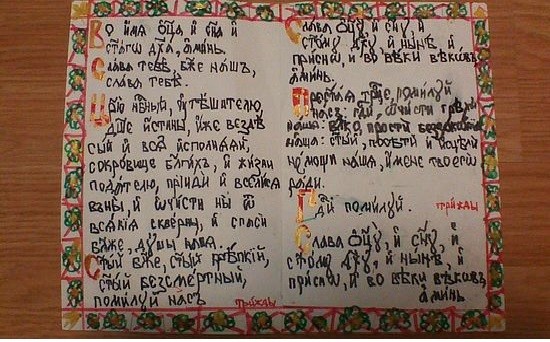 Во имя Оц҃а, и Сн҃а и
Ст҃аго Дх҃а, а҆минь.
Слава тебѣ, Бж҃е нашъ,
слава тебѣ.
Цр҃ю нб҃ный, ᲂутѣшителю,
Дш҃е истины, иже вездѣ
сый и вся исполняяй,
сокровище благихъ, и жизни
подателю, прииди и вселися
въ ны, и ѡчисти ны ѿ
всякия скверны, и спаси
Бл҃же, душы наша.
Ст҃ый Бж҃е, ст҃ый крѣпкій,
ст҃ый безсмертный,
помилуй насъ трижды
Слава Оц҃у, и Сн҃у и
ст҃ому Дх҃у, и нынѣ, и
присно, и во вѣки вѣковъ
а҆минь.
Прест҃ая Трц҃е, помилуй
насъ, Гд҃и, ѡчисти грѣхи
наша: Влк҃о, прости беззакония
наша: Ст҃ый, посѣти и исцѣли
немощи наша, имене твоего
ради.
Гд҃и помилуй. трижды
Слава Оц҃у, и Сн҃у, и
ст҃ому Дх҃у, и нынѣ, и
присно, и во вѣки вѣковъ
а҆минь